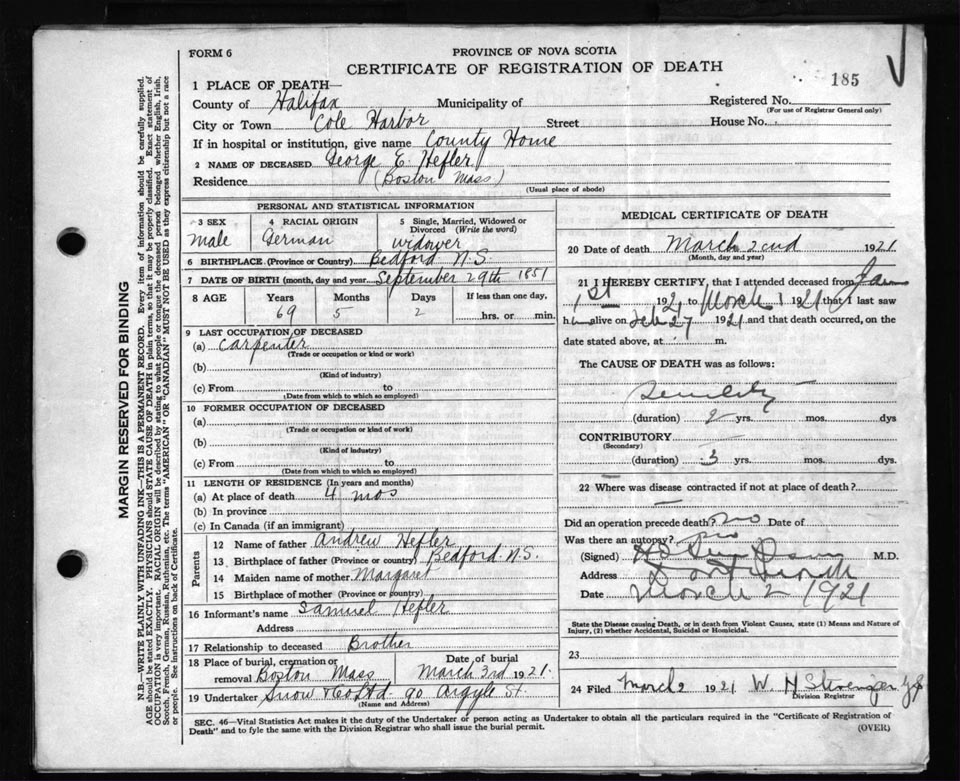 FORM 6
PROVINCE OF NOVA SCOTIA
CERTIFICATE OF REGISTRATION OF DEATH
185
1 PLACE OF DEATH—
County of Halifax Municipality of Registered No.
(For use of Registrar General only)
City or Town Cole Harbor Street House No.
If in hospital or institution, give name County Home
2 NAME OF DECEASED George E. Hefler
Residence (Boston Mass)
(Usual place of abode)
PERSONAL AND STATISTICAL INFORMATION
3 SEX 4 RACIAL ORIGIN 5 Single, Married, Widowed or
Divorced (Write the word)
male German widower
6 BIRTHPLACE (Province or Country) Bedford N.S.
7 DATE OF BIRTH (month, day and year) September 29th 1851
8 AGE Years Months Days If less than one day,
69 5 2 hrs. or min.
9 LAST OCCUPATION OF DECEASED
(a) Carpenter
(Trade or occupation or kind or work)
(b)
(Kind of industry)
(c) From to
(Date from which to which so employed)
10 FORMER OCCUPATION OF DECEASED
(a)
(Trade or occupation or kind of work)
(b)
(Kind of industry)
(c) From to
(Date from which to which so employed)
11 LENGTH OF RESIDENCE (In years and months)
(a) At place of death 4 mos
(b) In province
(c) In Canada (if an immigrant)
Parents
12 Name of father Andrew Hefler
13 Birthplace of father (Province or country) Bedford N.S.
14 Maiden name of mother Margaret
15 Birthplace of mother (Province or country)
16 Informant's name Samuel Hefler
Address
17 Relationship to deceased Brother
18 Place of burial, cremation or Date of burial
removal Boston Mass March 3rd 1921.
19 Undertaker Snow & Co Ltd. 90 Argyle St.
(Name and Address)
MEDICAL CERTIFICATE OF DEATH
20 Date of death March 2nd 1921
(Month, day and year)
21 I HEREBY CERTIFY, that I attended deceased from Jan
1st 1921 to March 1 1921 that I last saw
him alive on Feb 27 1921 and that death occurred, on the
date stated above, at m.
The CAUSE OF DEATH was as follows:
Senility
(duration) 2 yrs. mos. dys
CONTRIBUTORY
(Secondary)
(duration) 3 yrs. mos. dys.
22 Where was disease contracted if not at place of death?
Did an operation precede death? no Date of
Was there an autopsy? no
(Signed) M.D.
Address Dartmouth
Date March 2 1921
State the Disease causing Death, or in death from Violent Causes, state (1) Means and Nature of
Injury, (2) whether Accidental, Suicidal or Homicidal.
23
24 Filed March 2 1921 W. H.
Division Registrar
SEC. 46—Vital Statistics Act makes it the duty of the Undertaker or person acting as Undertaker to obtain all the particulars required in the "Certificate of Registration of
Death" and to fyle the same with the Division Registrar who shall issue the burial permit.
(OVER)
MARGIN RESERVED FOR BINDING
N.B.—WRITE PLAINLY WITH UNFADING INK—THIS IS A PERMANENT RECORD. Every item of information should be carefully supplied.
AGE should be stated EXACTLY. PHYSICIANS should STATE CAUSE OF DEATH in plain terms, so that it may be properly classified. Exact statement of
OCCUPATION is very important. RACIAL ORIGIN will be described by stating to what people or tongue the deceased person belonged, whether English, Irish,
Scotch, French, German, Russian, Ruthenian, etc. The terms "AMERICAN" OR "CANADIAN" MUST NOT BE USED as they express citizenship but not a race
or people. See instructions on back of Certificate.